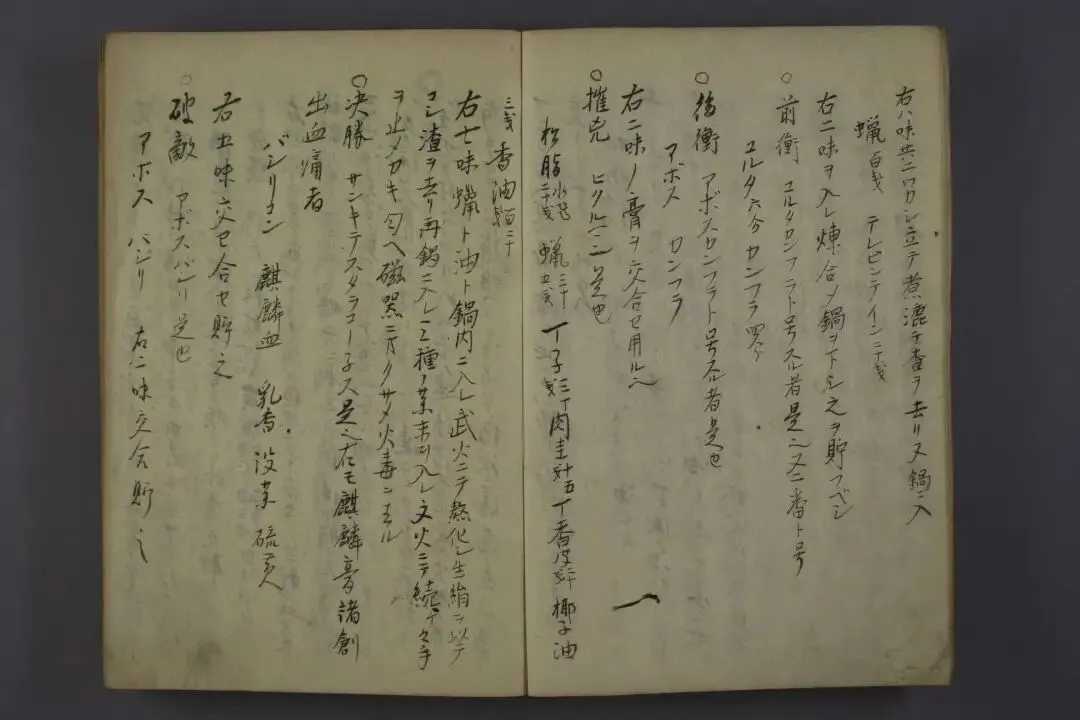 右八味共ニワカシ立テ煮漉テ査ヲ去リ又鍋ニ入
蝋百戔 テレビンテイン二十戔
右二味ヲ入レ煉合〆鍋ヲ下シ之ヲ貯フベシ
○前衝 ユルタカンフラト号スル者是也又二番ト号
ユルタ六分カンフラ四分
○後衝 アボスカンフラト号スル者是也
アボス カンフラ
右二味ノ膏ヲ交合セ用ル也
○摧兇 ヒリル 是也
松脂 二十戔 蝋 三十五戔 丁子 三戔 肉圭 丁香皮 椰子油
三戔 香油 百二十戔
右七味蝋ト油ト鍋内ニ入レ武火ニテ熬化シ生絹ヲ以テ
コシ渣ヲ去リ再鍋ニ入レ三種ノ薬末ヲ入レ文火ニテ続テ々手
ヲ止メカキ匀ヘ磁器ニカクサメ火毒ニ
○决勝 サンキテスタラコー子ス是也在モ麒麟膏諸創
出血痛者
バシリコン 麒麟血 乳香 没薬 硫黄
右五味交セ合セ貯之
○破敵 アボスバシリ是也
アボス バシリ 右二味交合貯之